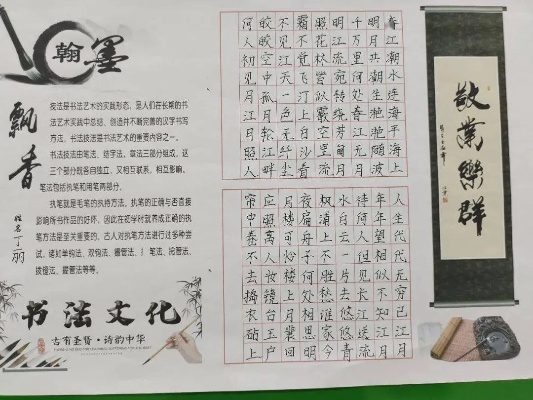 翰墨
飘香
姓名丁丽
技法是书法艺术的实践形态，是人们在长期的书
法艺术实践中总结、创造并不断完善的汉字书写
方法，书法技法是书法艺术的重要内容之一。
书法技法由笔法、结字法、章法三部分组成，这
三个部分既各自独立、又相互联系、相互影响。
笔法包括执笔和用笔两部分。
执笔就是毛笔的执持方法。执笔的正确与否直接
影响所书作品的好坏，因此在初学时就养成正确的执
笔方法是至关重要的。古人对执笔方法进行过多种尝
试，诸如单钩法、双钩法、
笔法、
法、
法、握管法等等。
书法文化
古有圣贤·诗韵中华
春江潮水连海平海上
明月共潮生滟滟随波
千万里何处春江无月
明江流宛转绕芳甸月
照花林皆似霰空里流
霜不觉飞汀上白沙看
不见江天一色无纤尘
皎皎空中孤月轮江畔
何人初见月江月照人
人生代代无穷已江月
年年望相似不知江月
待何人但见长江送流
水白云一片去悠悠青
枫浦上不胜愁谁家今
夜扁舟子何处相思明
月楼可怜楼上月裴回
应照离人妆镜台玉户
帘中卷不去捣衣砧上
敬業樂群